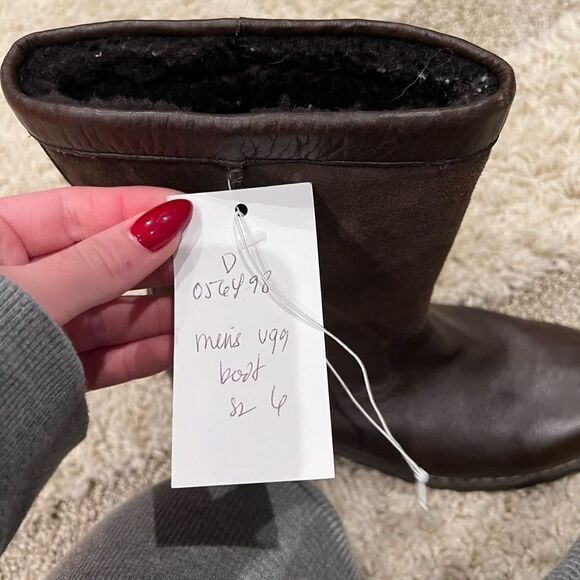 D
056498
men's ugg
boot
sz 6